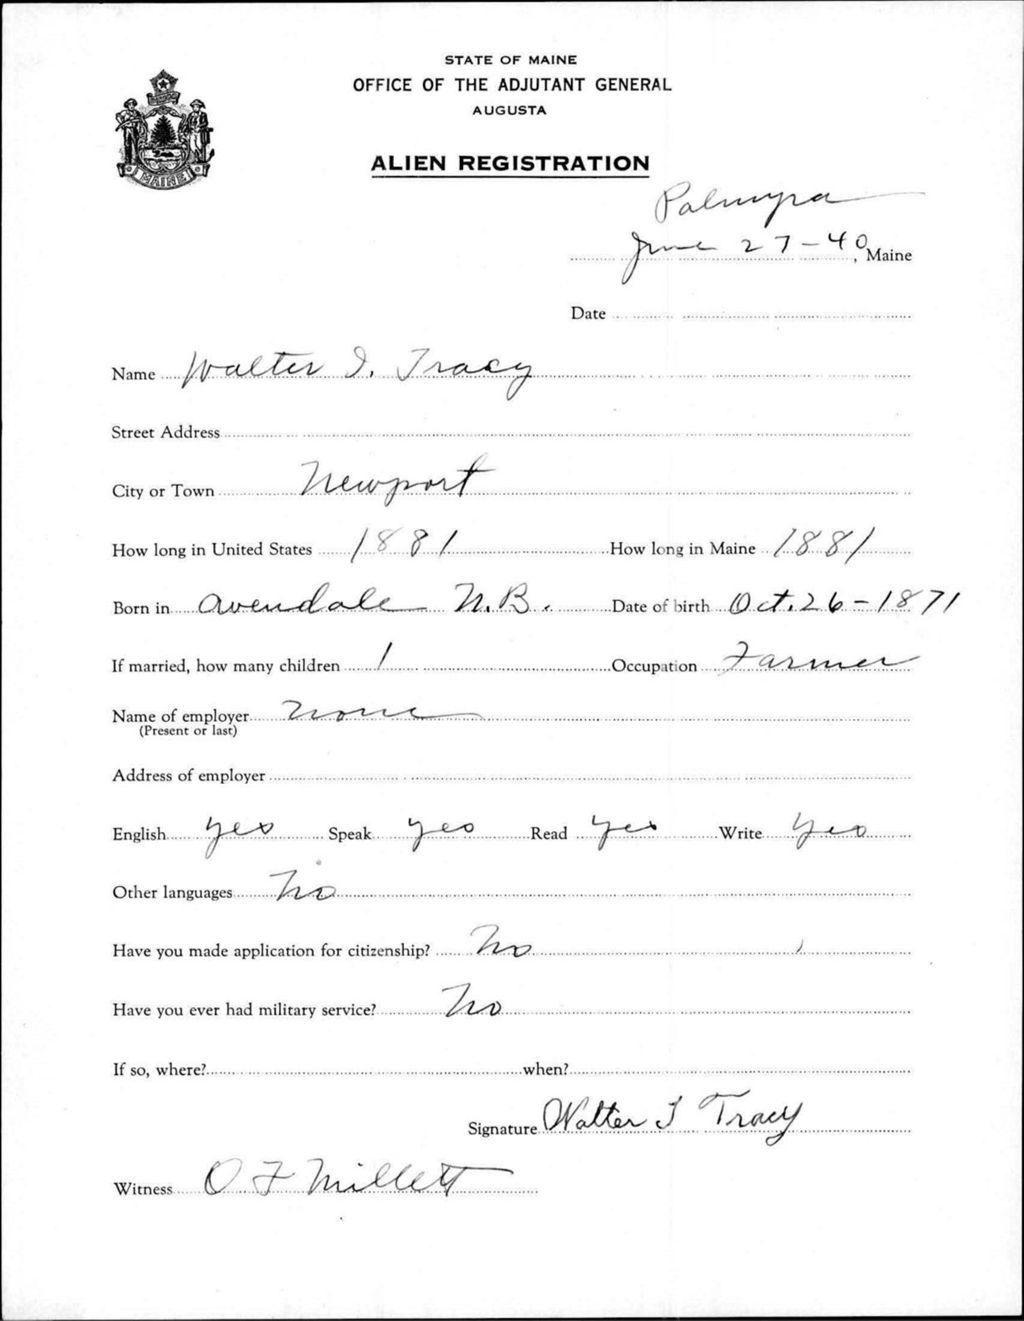 STATE OF MAINE
OFFICE OF THE ADJUTANT GENERAL
AUGUSTA
MAINE
ALIEN REGISTRATION
Palmyra
June 27-40, Maine
Date
Name Walter I. Tracy
Street Address
City or Town Newport
How long in United States 1881 How long in Maine 1881
Born in Avendale N.B. Date of birth Oct. 26-1871
If married, how many children 1 Occupation Farmer
Name of employer None
(Present or last)
Address of employer
English yes Speak yes Read yes Write yes
Other languages No
Have you made application for citizenship? No
Have you ever had military service? No
If so, where? when?
Signature Walter I Tracy
Witness O F Millett